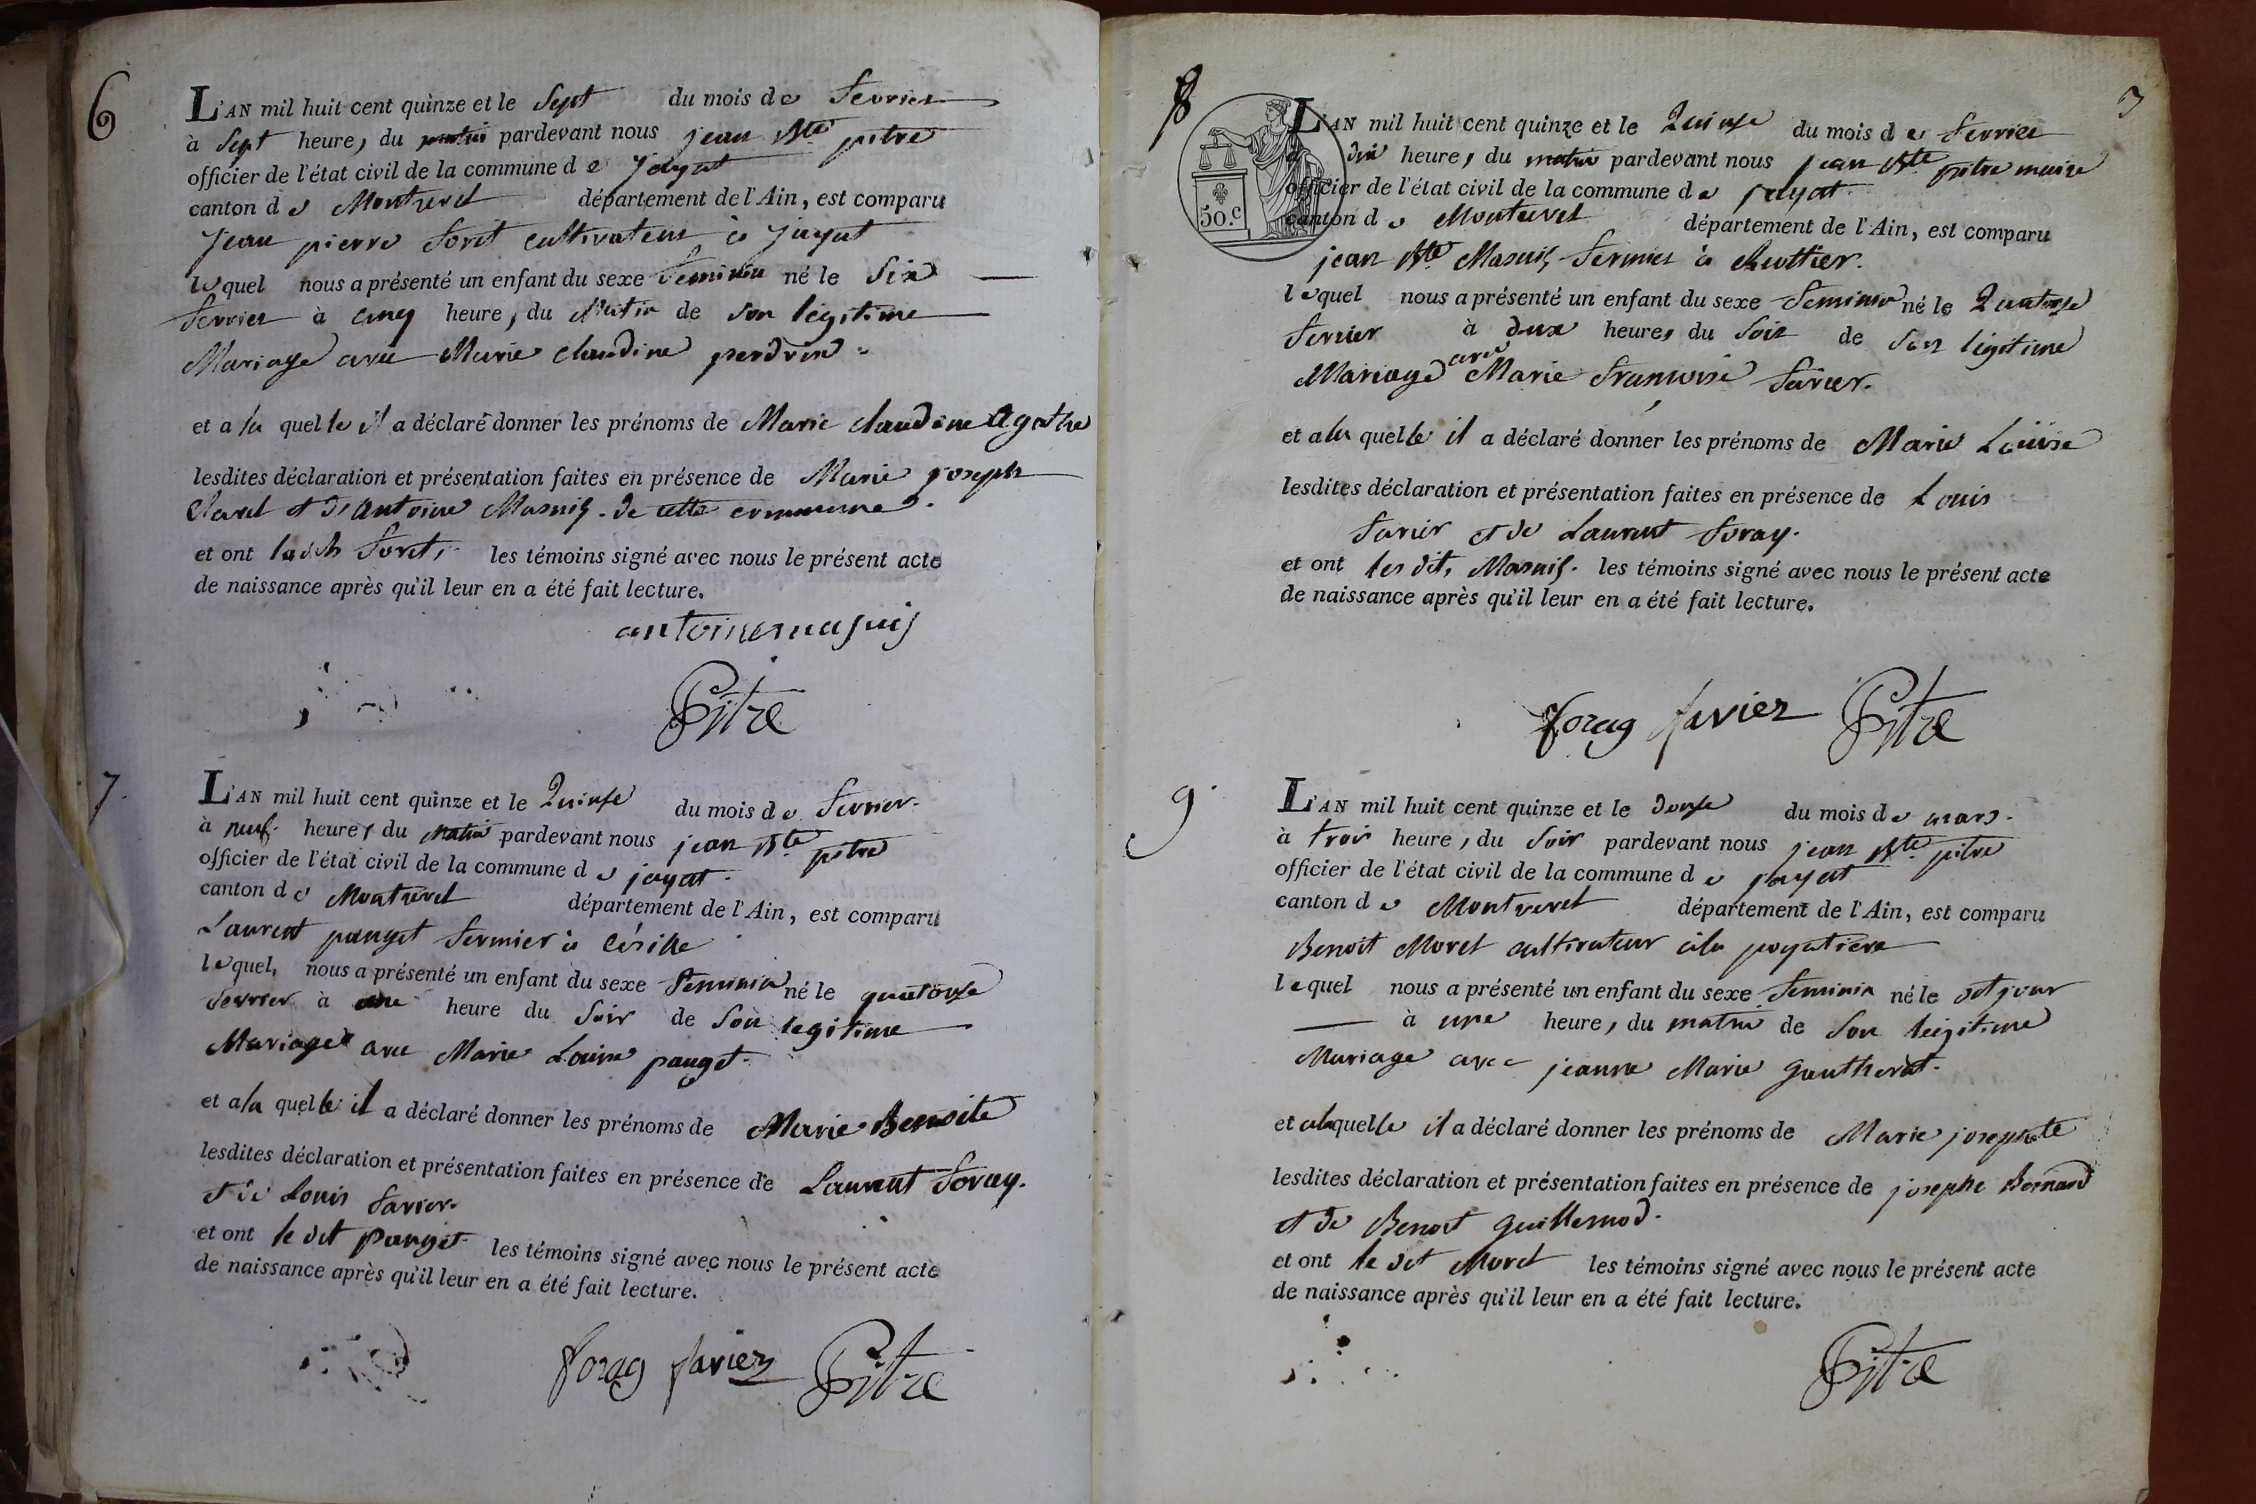 6
L'AN mil huit cent quinze et le Sept du mois de Fevrier
à Sept heure, du matin pardevant nous jean Bte pitre
officier de l'état civil de la commune de jayat
canton de Montrevel département de l'Ain, est comparu
Jean pierre foret cultivateur à Jayat
lequel nous a présenté un enfant du sexe feminin né le Six
fevrier à cinq heure, du Matin de son légitime
Mariage avec Marie claudine perdrix
et a la quelle il a déclaré donner les prénoms de Marie claudine Agathe
lesdites déclaration et présentation faites en présence de Marie joseph
Claret et d'antoine Masuis. de cette commune.
et ont foret, les témoins signé avec nous le présent acte
de naissance après qu'il leur en a été fait lecture.
antoine masuis
Pitre
7.
L'AN mil huit cent quinze et le Quinse du mois de fevrier.
à neuf heure, du matin pardevant nous jean Bte pitre
officier de l'état civil de la commune de jayat.
canton de Montrevel département de l'Ain, est comparu
Laurent panget fermier à
lequel, nous a présenté un enfant du sexe feminin né le quatorse
fevrier à une heure du Soir de Son legitime
Mariage avec Marie Louise panget.
et a la quelle il a déclaré donner les prénoms de Marie Benoite
lesdites déclaration et présentation faites en présence de Laurent foray.
et de Louis favier.
et ont le dit panget. les témoins signé avec nous le présent acte
de naissance après qu'il leur en a été fait lecture.
foray favier Pitre
8
7
50.c
L'AN mil huit cent quinze et le Quinse du mois de fevrier
à dix heure, du matin pardevant nous jean Bte pitre maire
officier de l'état civil de la commune de jayat.
canton de Montrevel département de l'Ain, est comparu
jean Bte Masuis fermier à
lequel nous a présenté un enfant du sexe feminin né le Quatorse
fevrier à deux heures du Soir de Son légitime
Mariage avec Marie françoise favier.
et a la quelle il a déclaré donner les prénoms de Marie Louise
lesdites déclaration et présentation faites en présence de Louis
favier et de Laurent foray.
et ont les dits, Masuis. les témoins signé avec nous le présent acte
de naissance après qu'il leur en a été fait lecture.
foray favier Pitre
9.
L'AN mil huit cent quinze et le douse du mois de mars.
à trois heure, du Soir pardevant nous jean Bte pitre
officier de l'état civil de la commune de jayat
canton de Montrevel département de l'Ain, est comparu
Benoit Moret cultivateur à la poyatiere
lequel nous a présenté un enfant du sexe feminin né le dit jour
à une heure, du matin de Son légitime
Mariage avec jeanne Marie Gautherat.
et a laquelle il a déclaré donner les prénoms de Marie josephte
lesdites déclaration et présentation faites en présence de josephe Bernard
et de Benoit Guillermod.
et ont le dit Moret les témoins signé avec nous le présent acte
de naissance après qu'il leur en a été fait lecture.
Pitre